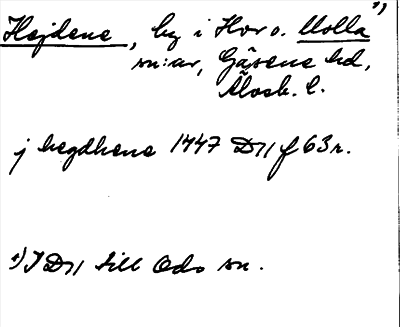 Hejdene, by i Hov o. Molla +)
sn:ar, Gäsene hd,
Älvsb. l.
j hegdhene 1447 D11 f 63r.
+) I D11 till Ods sn.